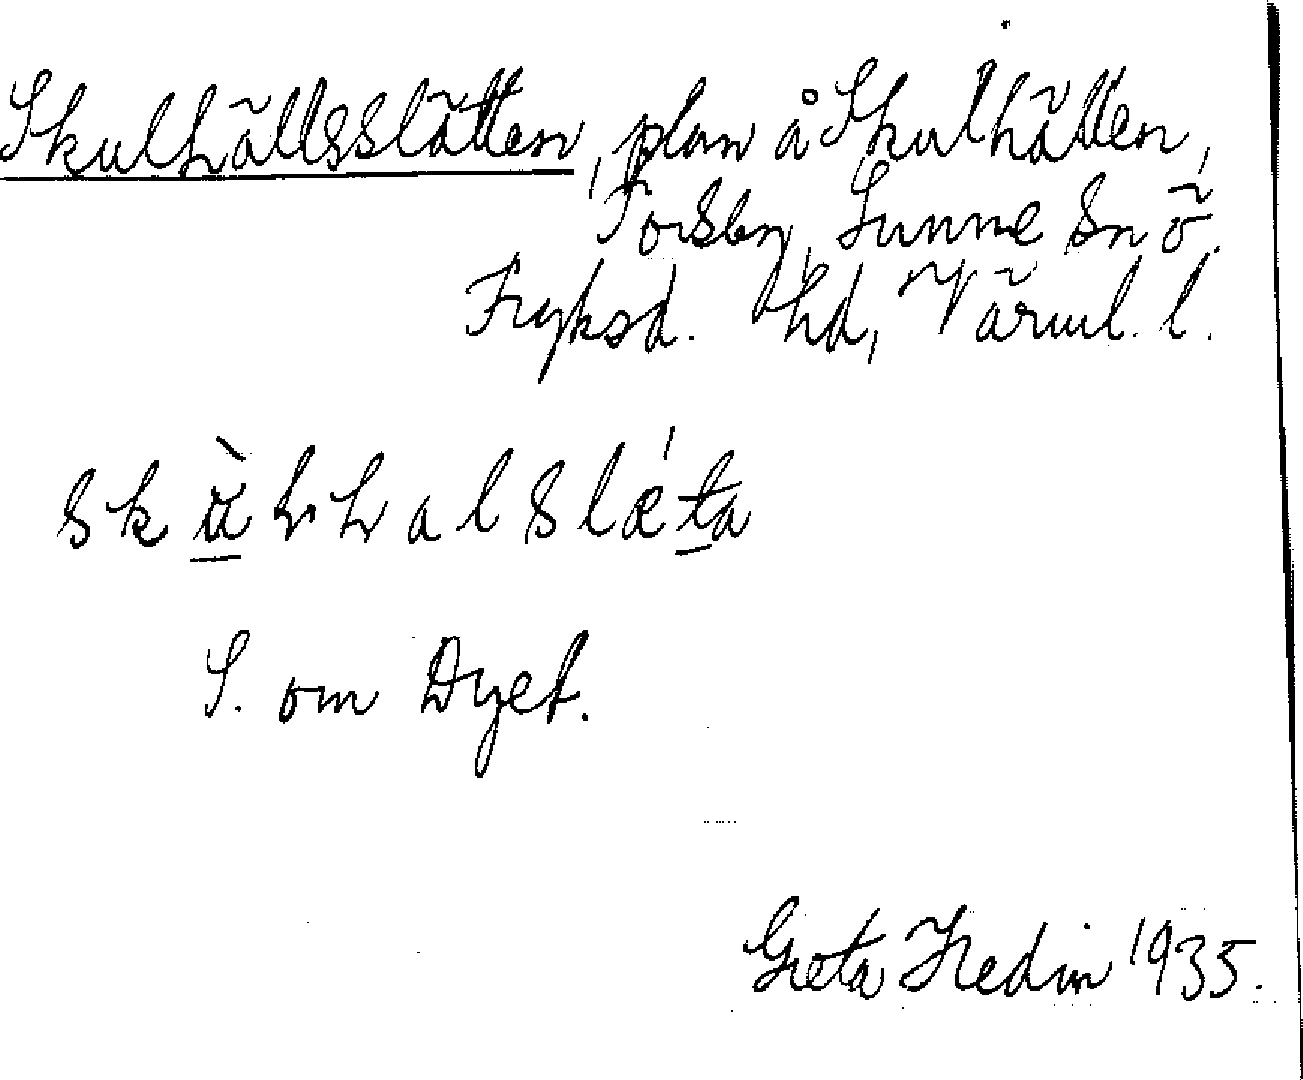 Skulhällsslätten, plan å Skulhällen,
Forsby, Sunne sn ö.
Fryksd. hd, Värml. l.
skùlhalslǽta
S. om Dyet.
Greta Hedin 1935.